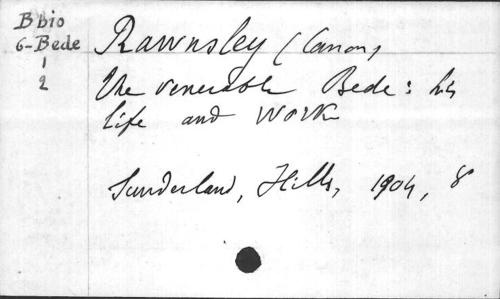 B bio
6-Bede
1
2
Rawnsley (Canon)
The venerable Bede: his
life and work
Sunderland, Hills, 1904, 8°